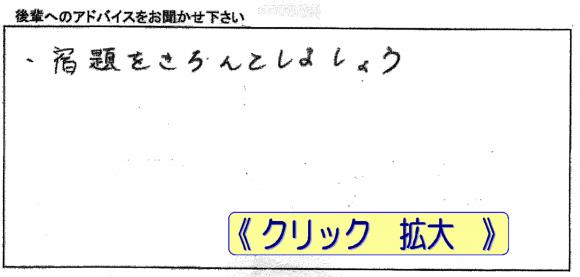 後輩へのアドバイスをお聞かせ下さい
・宿題をきちんとしましょう
《 クリック 拡大 》